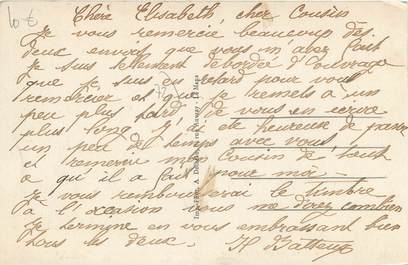 10 €
Chère Elisabeth, cher Cousin
Je vous remercie beaucoup des
deux envois que vous m'avez fait
Je suis tellement débordée d'ouvrage
que je suis en retard pour vous
remercier et que je remets à un
peu plus tard de vous en écrire
plus long. J'ai été heureuse de passer
un peu de temps avec vous,
et remercie mon Cousin de tout
ce qu'il a fait pour moi.
Je vous rembourserai le timbre
à l'occasion vous me direz combien
Je termine en vous embrassant bien
tous les deux.